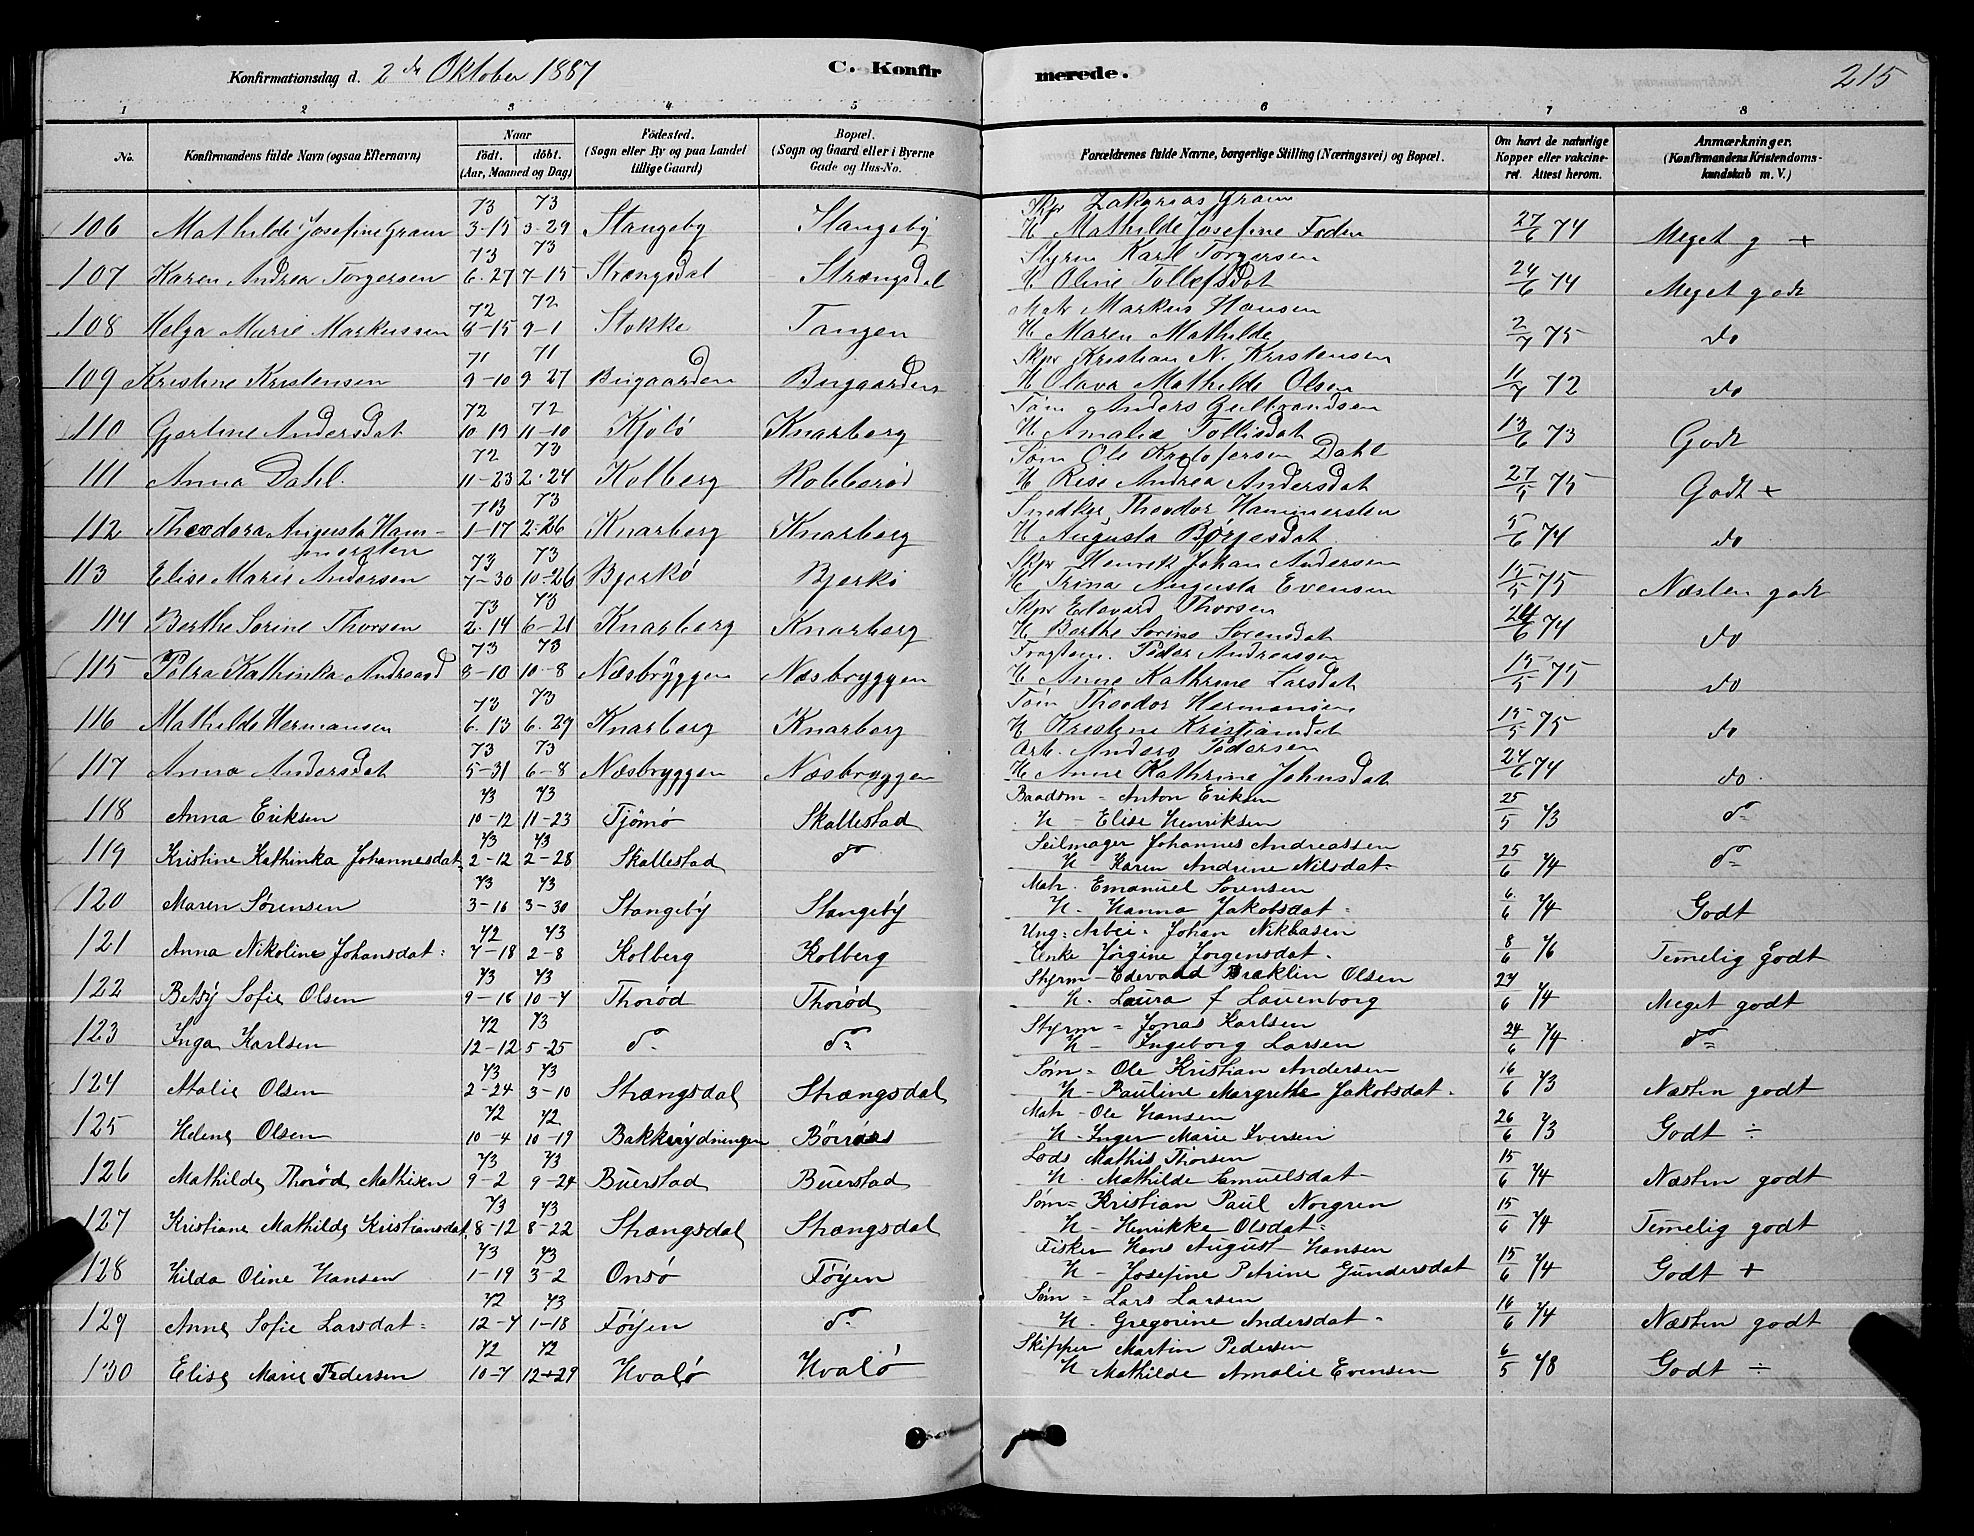 Konfirmationsdag d. 2 de Oktober 1887 C. Konfir merede. 215
1 2 3 4 5 6 7 8
No. Konfirmandens fulde Navn (ogsaa Efternavn) Naar födt. döbt. (Aar, Maaned og Dag) Födested. (Sogn eller By og paa Landet tillige Gaard) Bopæl. (Sogn og Gaard eller i Byerne Gade og Hus-No. Forældrenes fulde Navne, borgerlige Stilling (Næringsvei) og Bopæl. Om havt de naturlige Kopper eller vakcineret. Attest herom. Anmærkninger. (Konfirmandens Kristendomskundskab m. V.)
73 73 Skpr Zakarias Gram
106 Mathilde Josefine Gram 3-15 3-29 Stangeby Stangeby H Mathilde Josefine Foden 27/6 74 Meget g +
73 73 Styrm Karl Torgersen
107 Karen Andrea Torgersen 6-27 7-15 Strængsdal Strængsdal H Oline Tollefsdat 24/6 74 Meget godt
72 72 Matr Markus Hansen
108 Helga Marie Markussen 8-15 9-1 Stokke Tangen H Maren Mathilde 2/7 75 do
71 71 Skpr Kristian N. Kristensen
109 Kristine Kristensen 9-10 9-27 Bugaarden Bugaarden H Olava Mathilde Olsen 11/7 72 do
72 72 Töm Anders Gulbrandsen
110 Gjertine Andersdat 10-19 11-10 Kjölö Knarberg H Amalie Tollisdat 13/6 73 Godt
72 73 Söm Ole Kristofersen Dahl
111 Anna Dahl. 11-23 2-24 Kolberg Robberød H Rise Andrea Andersdat 27/5 75 Godt +
73 73 Snedker Theodor Hammersten
112 Theodora Augusta Ham- 1-17 2-26 Knarberg Knarberg H Augusta Børresdat 5/6 74 do
mersten 73 73 Skpr Henrik Johan Andersen
113 Elise Marie Andersen 7-30 10-26 Bjerkö Bjerkö H Trina Augusta Evensen 15/5 75 Næsten godt
73 73 Skpr Edevard Thorsen
114 Berthe Sorine Thorsen 2-14 6-21 Knarberg Knarberg H Berthe Sorine Sörensdat 74 do
73 73 Fragtem. Peder Andreassen
115 Petra Kathinka Andreasd 8-10 10-8 Næsbryggen Næsbryggen H Anne Kathrine Larsdat 15/5 75 do
73 73 Töm Theodor Hermansen
116 Mathilde Hermansen 6-13 6-29 Knarberg Knarberg H Kristine Kristiansdat 15/5 75 do
73 73 Arb. Anders Pedersen
117 Anna Andersdat 5-31 6-8 Næsbryggen Næsbryggen H Anne Kathrine Johnsdat 24/6 74 do
73 73 Baadsm - Anton Eriksen
118 Anna Eriksen 10-12 11-23 Tjömö Skallestad H - Elise Henriksen 25/5 73 do
73 73 Seilmager Johannes Andreassen
119 Kristine Kathinka Johannesdat. 2-12 2-28 Skallestad do H - Karen Andrine Nilsdat- 25/6 74 do
73 73 Matr. Emanuel Sörensen
120 Maren Sörensen 3-16 3-30 Stangeby Stangeby H. Hanna Jakobsdat - 6/6 74 Godt
72 73 Ung: Arbei. Johan Niklasen
121 Anna Nikoline Johansdat- 7-18 2-8 Kolberg Kolberg Enke Jörgine Jörgensdat - 8/6 76 Temelig Godt
73 73 Styrm - Edevard Braklin Olsen
122 Betsy Sofie Olsen 9-16 10-4 Thoröd Thoröd H. Laura f Lauenborg 24/6 74 Meget godt
72 73 Styrm = Jonas Karlsen
123 Inga Karlsen 12-12 5-25 do do H - Ingeborg Larsen 24/6 74 do
73 73 Söm = Ole Kristian Andersen
124 Atalie Olsen 2-24 3-10 Strængsdal Strængsdal H - Pauline Margrethe Jakobsdat - 16/6 73 Næsten godt
72 72 Matr - Ole Hansen
125 Helene Olsen 10-4 10-19 Bakkerydningen H - Inger Marie Iversen 26/6 73 Godt ÷
73 73 Lods Mathis Thorsen
126 Mathilde Thoröd Mathisen 9-2 9-24 Buerstad Buerstad H. Mathilde Samuelsdat- 15/6 74 Næsten godt
73 73 Söm = Kristian Paul Norgren
127 Kristiane Mathilde Kristiansdat. 8-12 8-22 Strængsdal Strængsdal H - Henrikke Olsdat- 15/6 74 Temelig godt
73 73 Fisker Hans August Hansen
128 Hilda Oline Hansen 1-19 3-2 Onsö Föyen H - Josefine Petrine Gundersdat 15/6 74 Godt +
72 73 Söm = Lars Larsen
129 Anne Sofie Larsdat- 12-7 1-18 Föyen do H. Gregorine Andersdat - 16/6 74 Næsten godt
72 72 Skipper Martin Pedersen
130 Elise Marie Pedersen 10-7 12-29 Hvalö Hvalö H Mathilde Amalie Evensen 6/5 78 Godt ÷